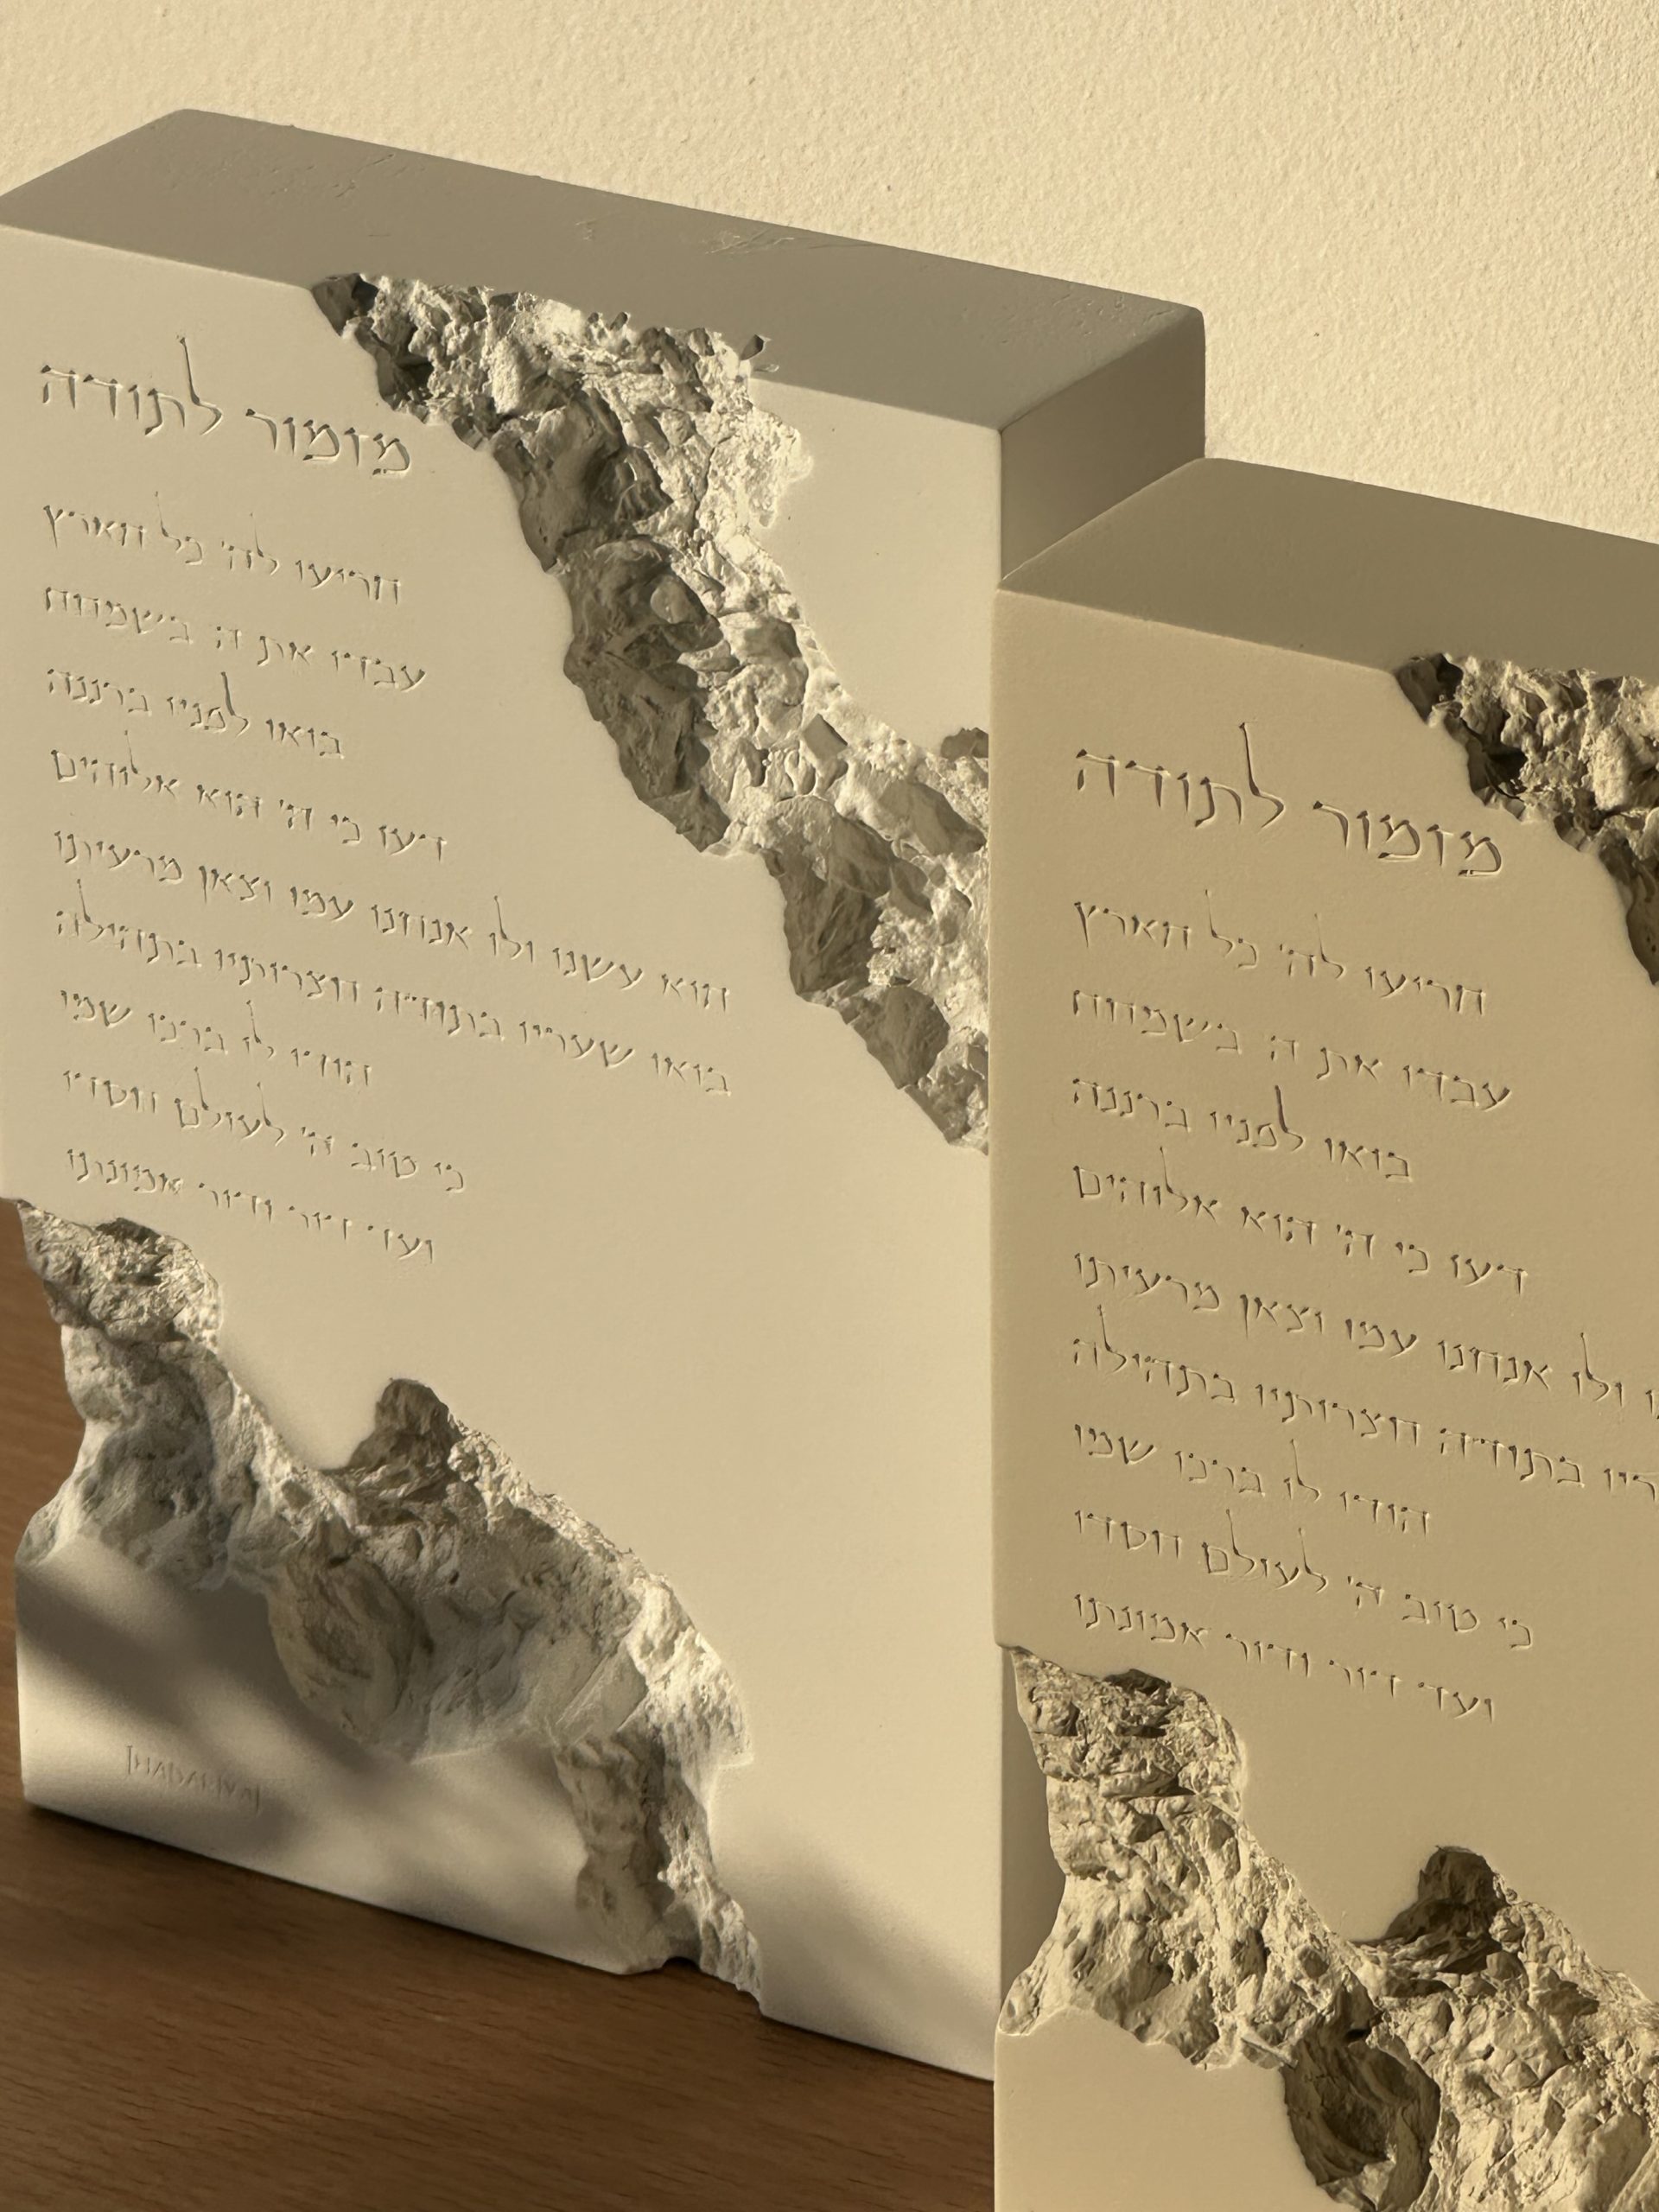 מזמור לתודה
הריעו לה' כל הארץ
עבדיו את ה בשמחה
בואו לפניו ברננה
דעו כי ה' הוא אלוהים
הוא עשנו ולו אנחנו עמו וצאן מרעיתו
בואו שעריו בתודה חצרותיו בתהילה
הודו לו ברכו שמו
כי טוב ה' לעולם חסדו
ועד דור ודור אמונתו
מזמור לתודה
הריעו לה' כל הארץ
עבדיו את ה בשמחה
בואו לפניו ברננה
דעו כי ה' הוא אלוהים
ולו אנחנו עמו וצאן מרעיתו
בתודה חצרותיו בתהילה
הודו לו ברכו שמו
כי טוב ה' לעולם חסדו
ועד דור ודור אמונתו